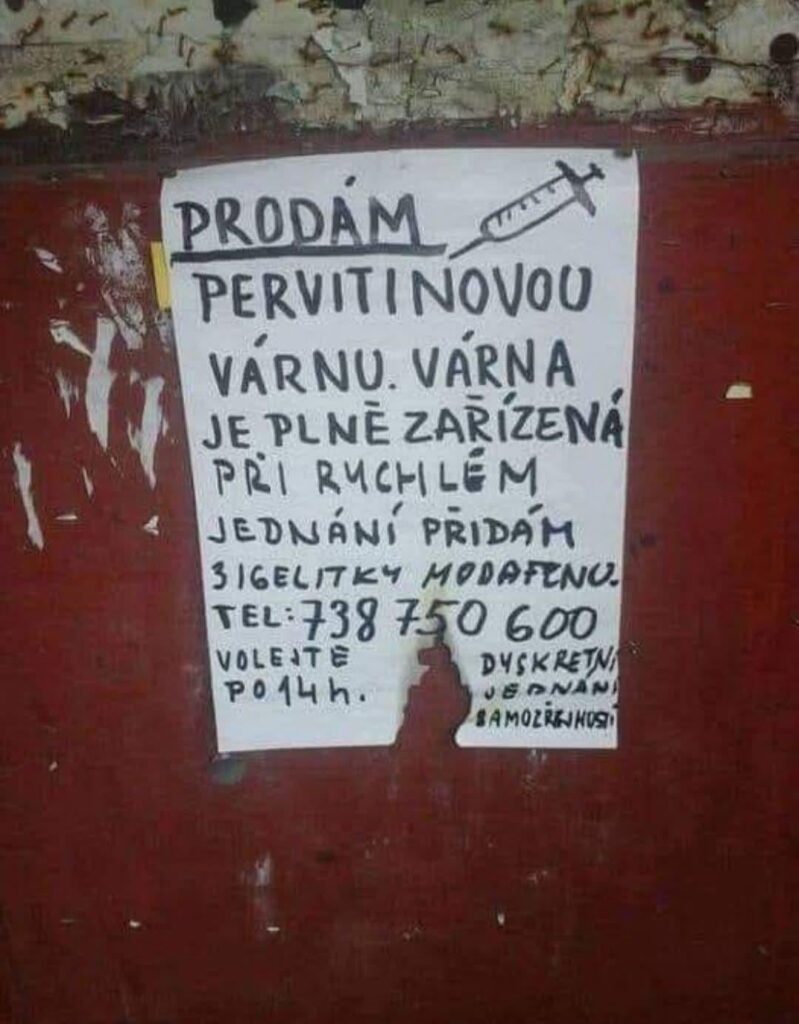 PRODÁM
PERVITINOVOU
VÁRNU. VÁRNA
JE PLNĚ ZAŘÍZENÁ
PŘI RYCHLÉM
JEDNÁNÍ PŘIDÁM
3 IGELITKY MODAFENU.
TEL: 738 750 600
VOLEJTE
PO 14 h.
DYSKRETNÍ
JEDNÁNÍ
SAMOZŘEJMOSTÍ